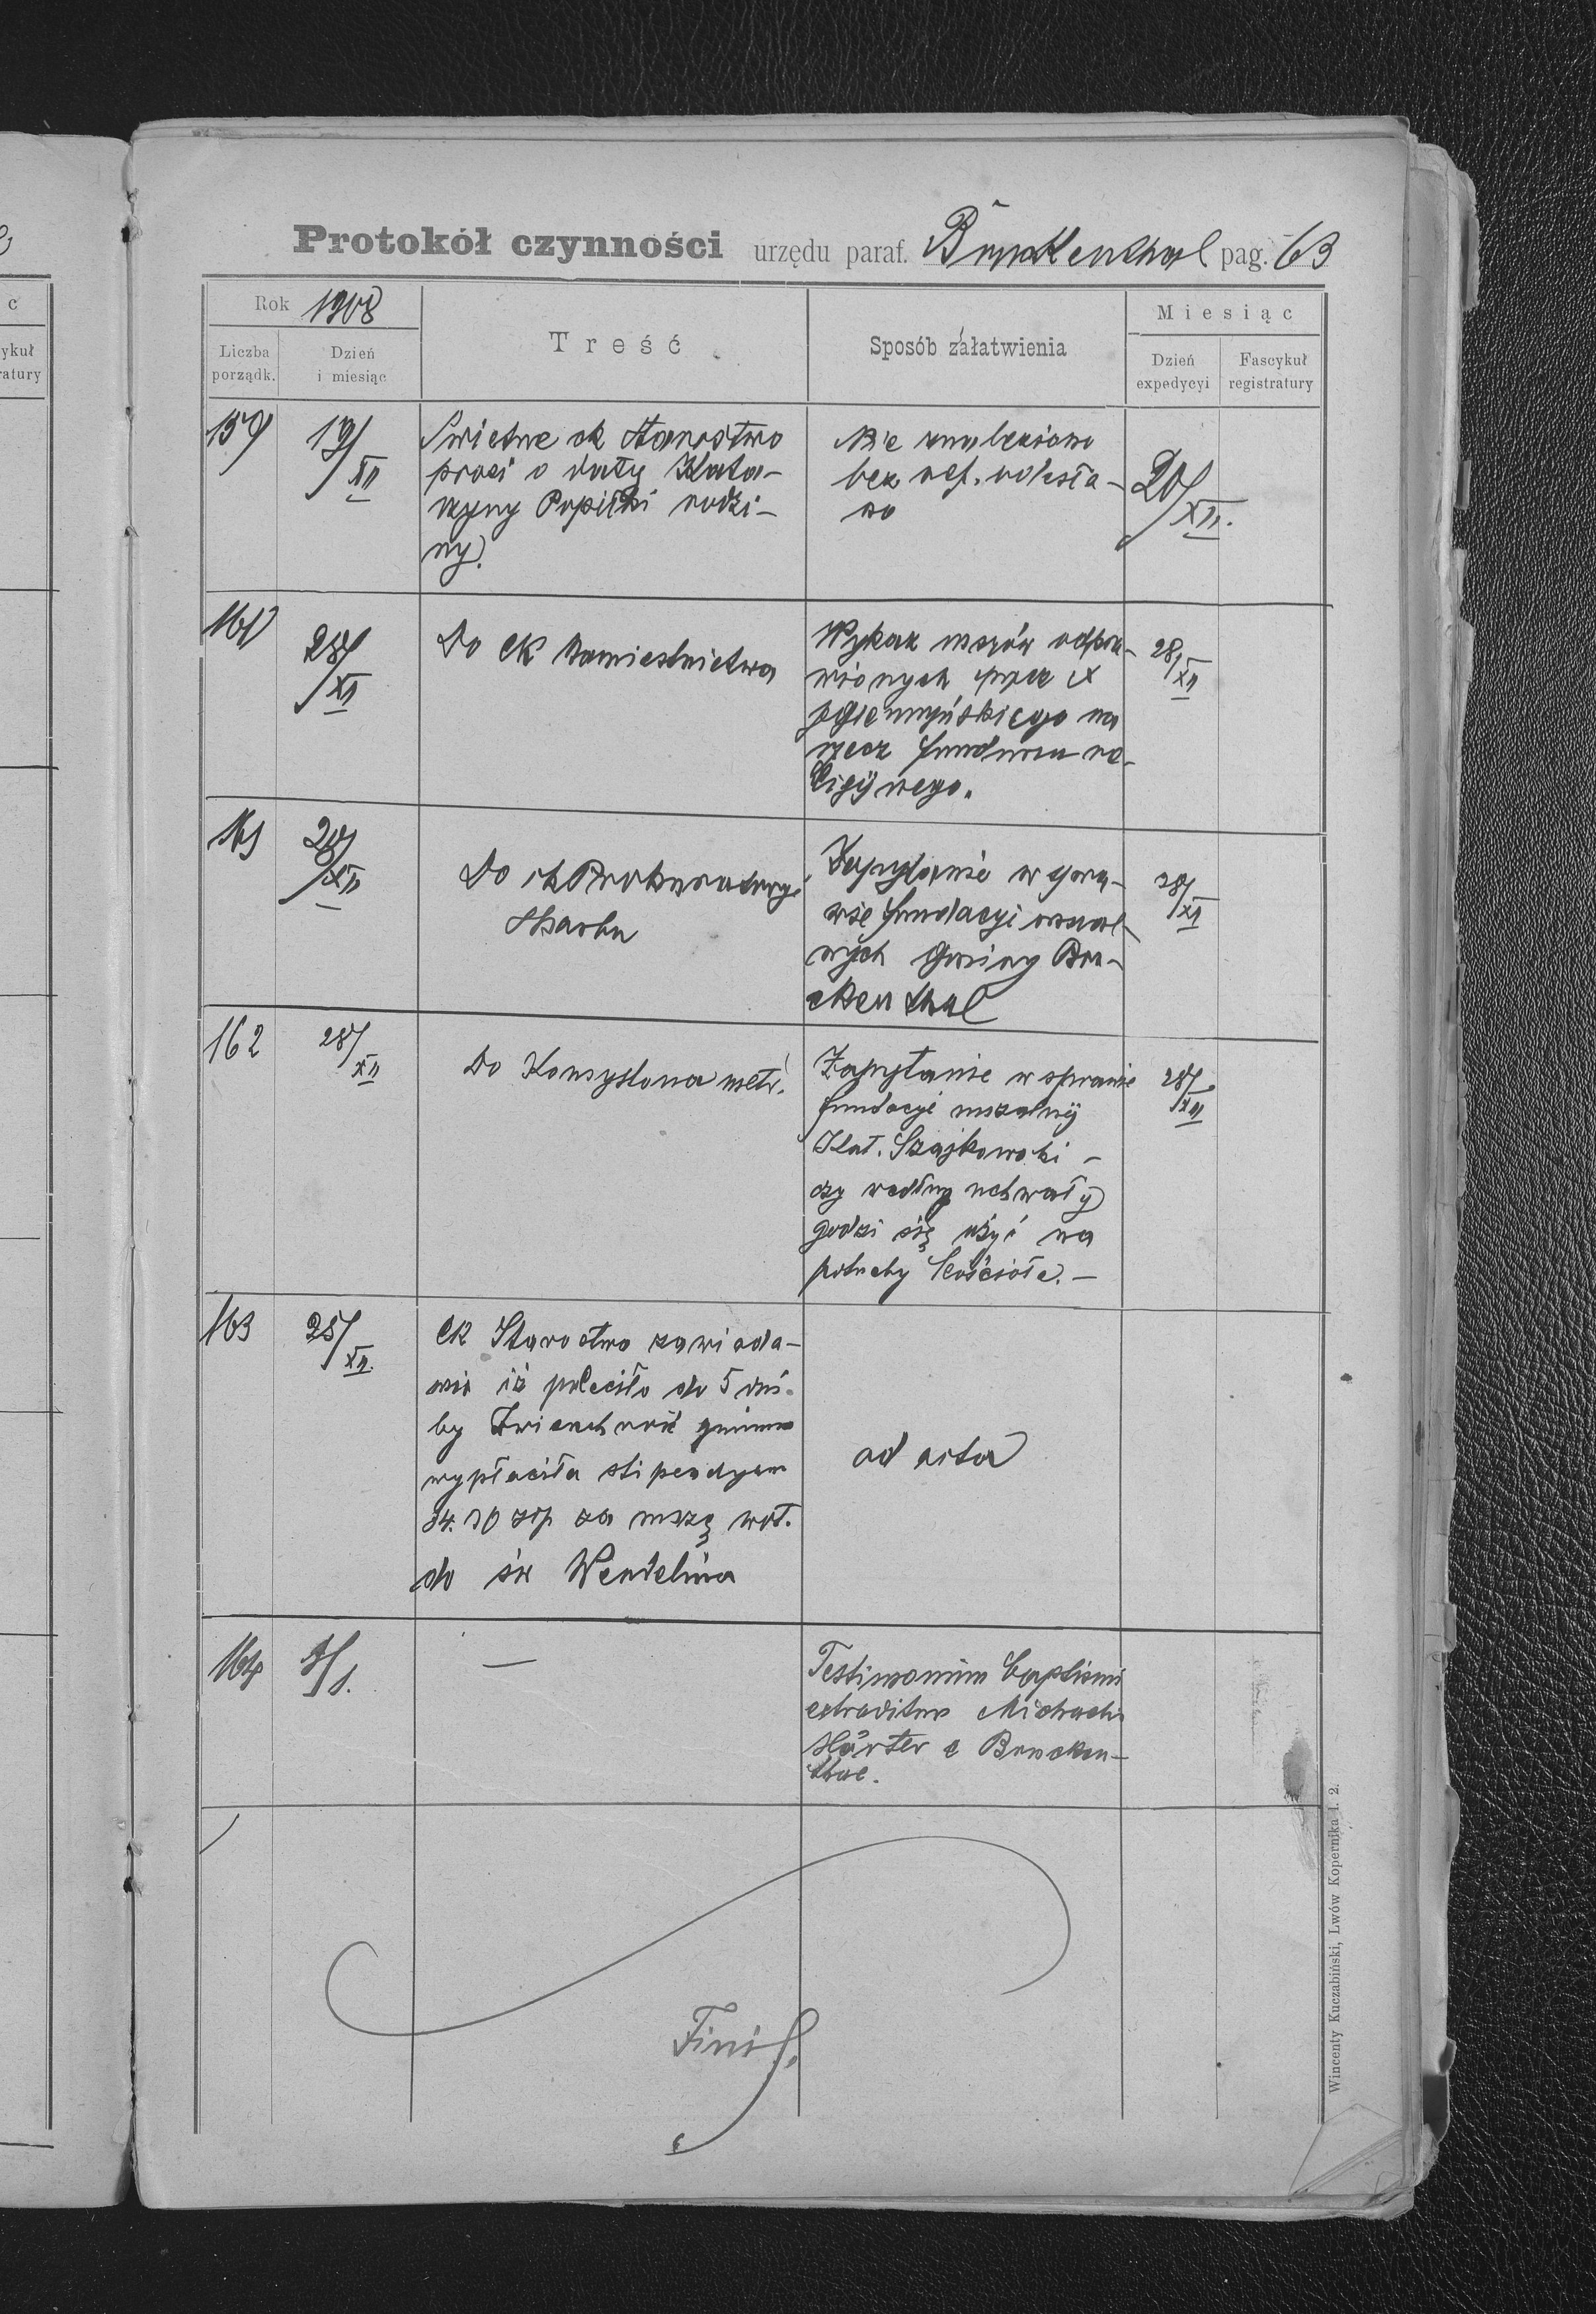 Protokół czynności urzędu paraf. Bruckenthal pag. 63
Rok 1908
Liczba porządk.
Dzień i miesiąc
Treść
Sposób załatwienia
Miesiąc
Dzień expedycyi
Fascykuł registratury
159
19/XII
Swietne ck Starostwo
prosi o daty Kata-
rzyny Popiłki rodzi-
ny.
Nie znaleziono
bez odesła-
no
20/XII.
160
28/XII
Do CK Namiestnictwa
Wykaz mszy odpra-
wionych przez X
na
rzecz funduszu re-
ligijnego.
28/XII
161
28/XII
Do ck Prokuratoryi
Skarbu
Zapytanie w spra-
wie fundacyi mszal-
nych gminy Bru-
ckenthal
28/XII
162
28/XII
Do Konsystorza metr.
Zapytanie w sprawie
fundacyi mszalnij
Kat. Szajkowski -
czy według uchwały
godzi się użyć na
potrzeby kościoła. -
28/XII
163
28/XII.
CK Starostwo zawiada-
mia iż poleciło do 5 dni
by Zwierzchność gminna
wypłaciła stipendyum
za mszę wot.
do św Wendelina
ad acta
164
—
Testimonium baptismi
extraditum Michaeli
Härter e Brucken-
thal.
Finis.
Wincenty Kuczabiński, Lwów Kopernika l. 2.
c
ykuł
ratury